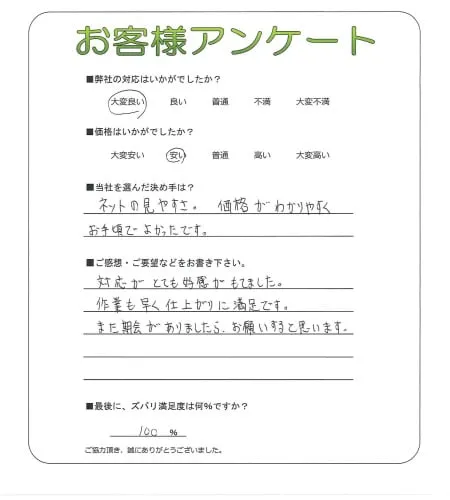 お客様アンケート
■弊社の対応はいかがでしたか?
大変良い 良い 普通 不満 大変不満
■価格はいかがでしたか?
大変安い 安い 普通 高い 大変高い
■当社を選んだ決め手は?
ネットの見やすさ。 価格がわかりやすく
お手頃でよかったです。
■ご感想・ご要望などをお書き下さい。
対応がとても好感がもてました。
作業も早く仕上がりに満足です。
また期会がありましたら、お願いすると思います。
■最後に、ズバリ満足度は何%ですか?
100 %
ご協力頂き、誠にありがとうございました。